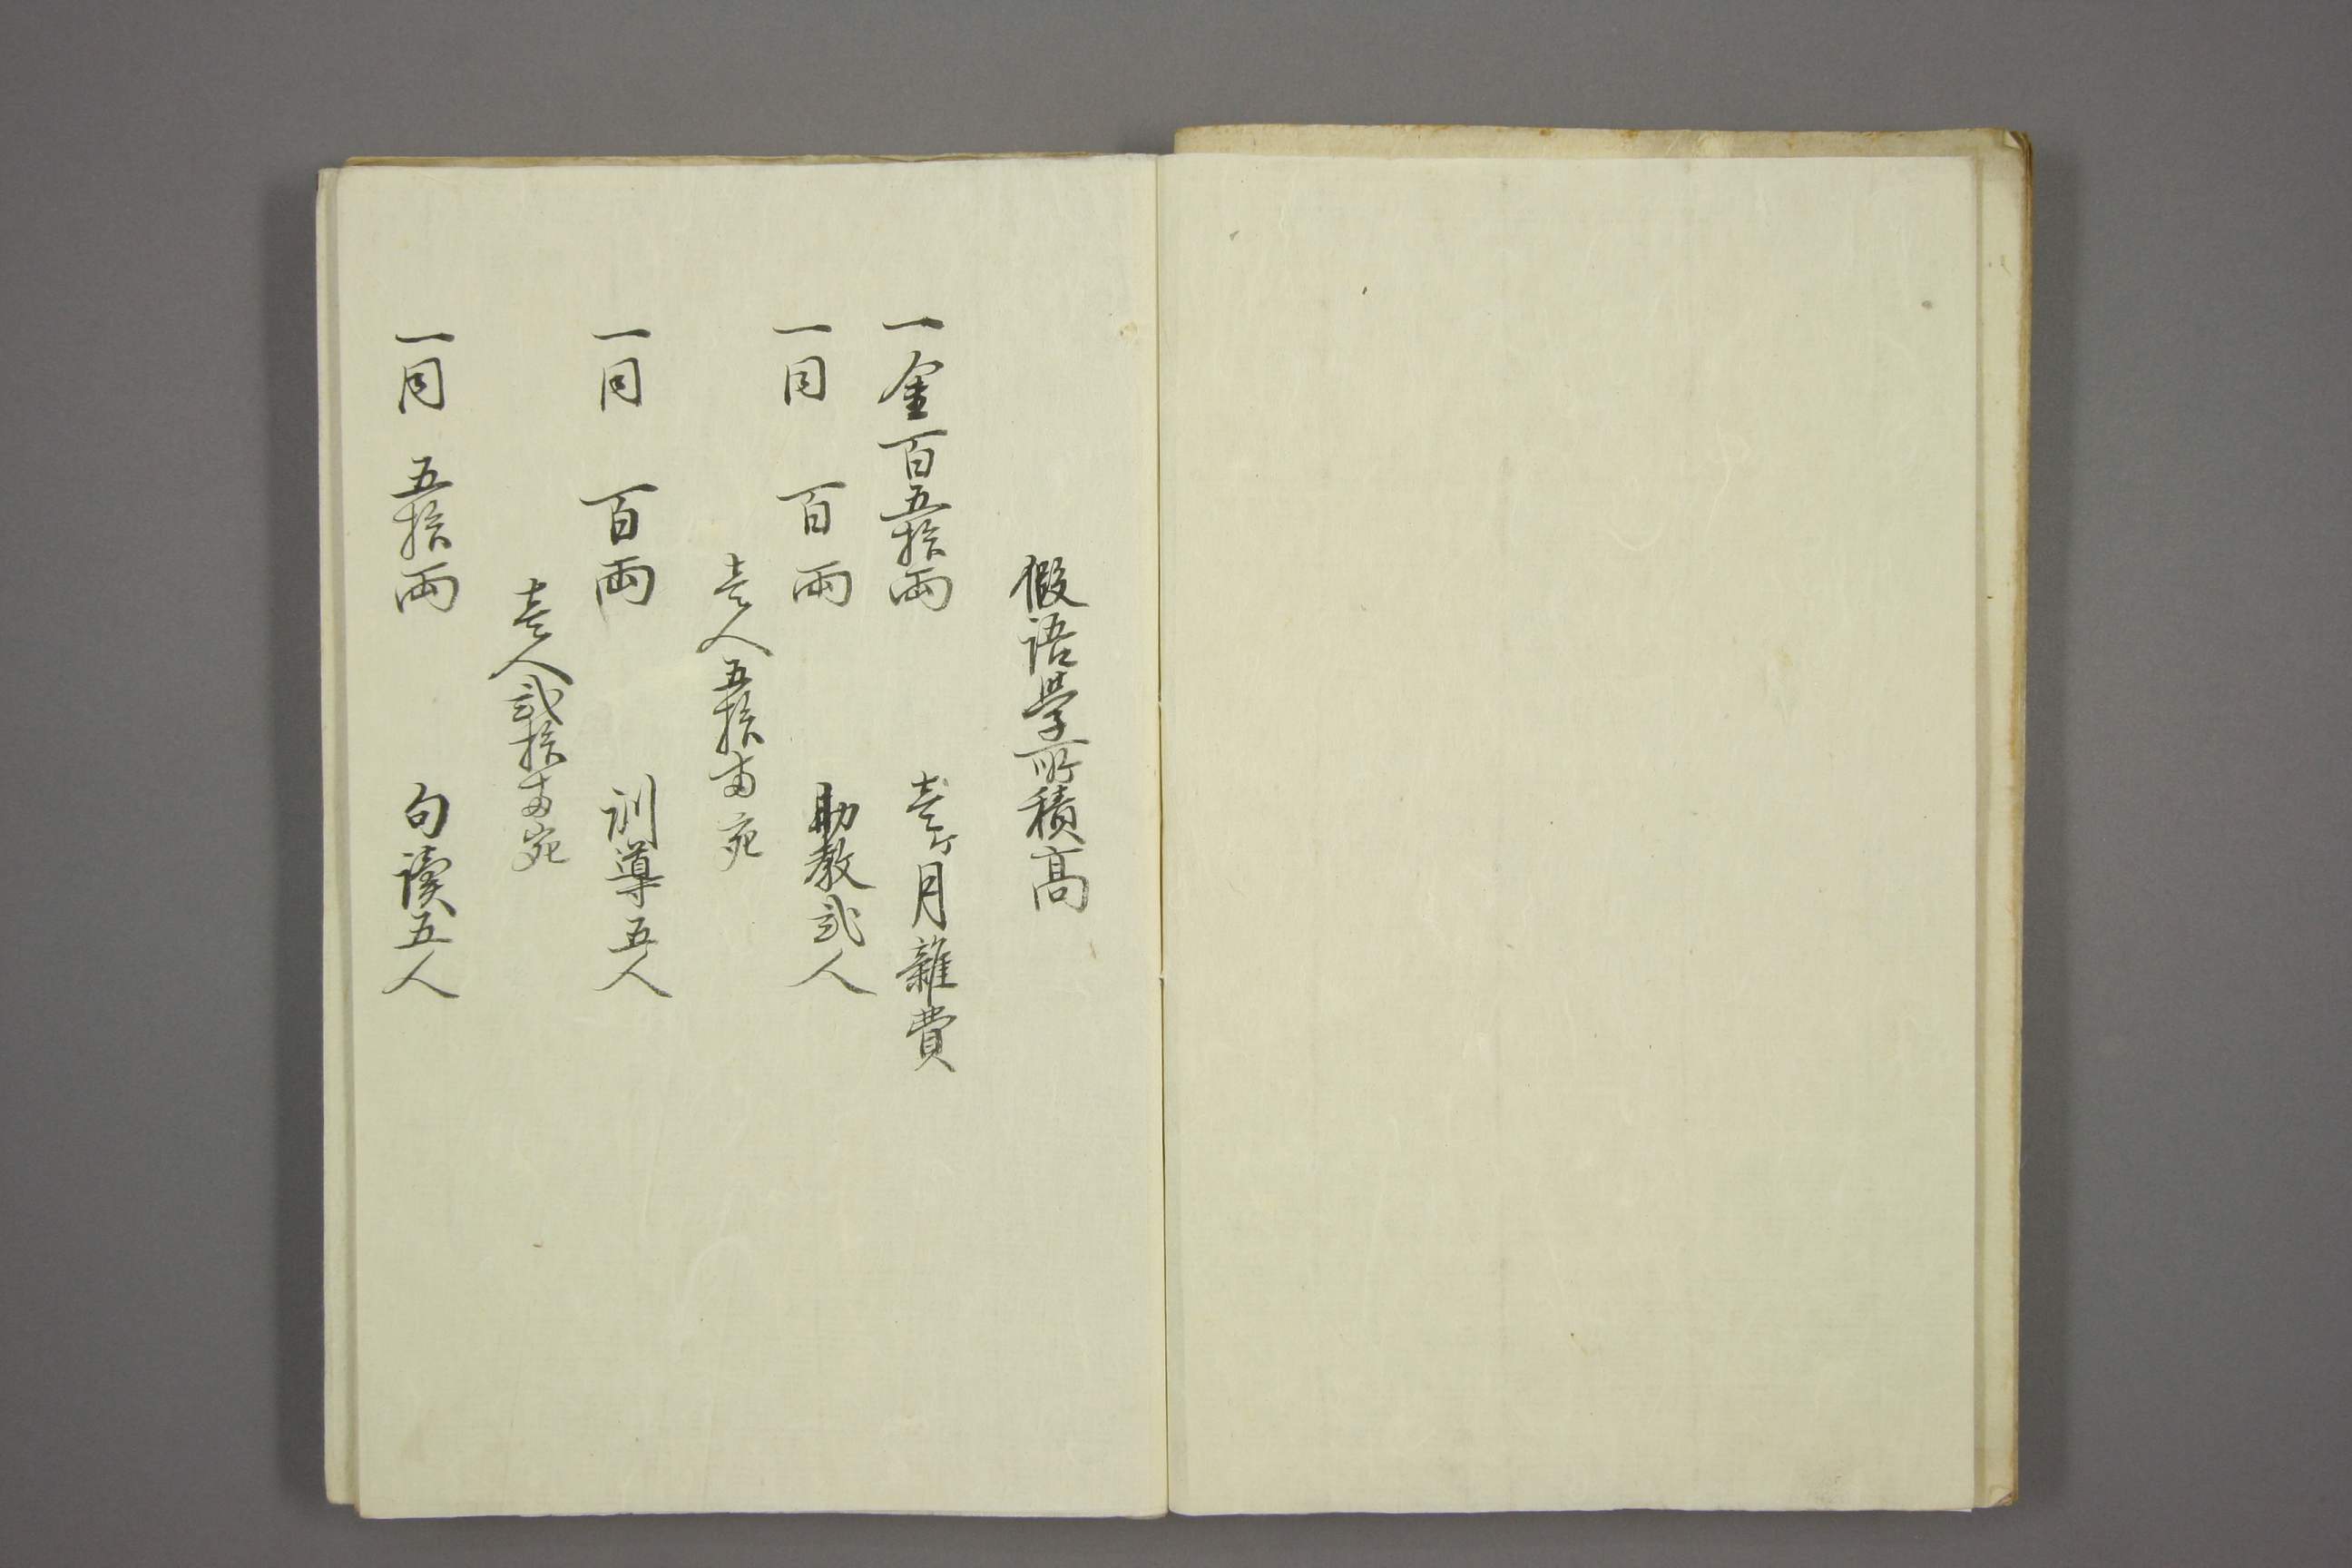 假語學所積高
一金百五拾兩　壱ケ月雜費
一同　百兩　助教弐人
壱人五拾両宛
一同　百兩　訓導五人
壱人弐拾両宛
一同　五拾兩　句讀五人